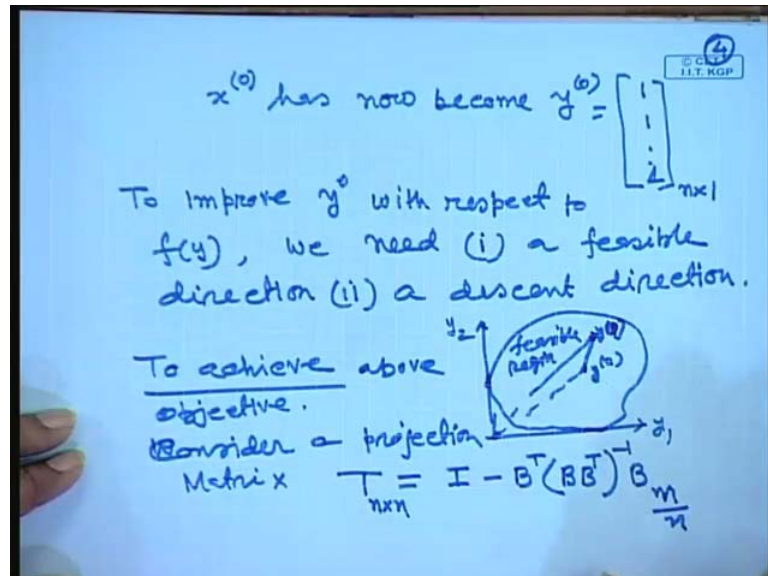 ④
© CET
I.I.T. KGP
x^(0) has now become y^(0) = [1 1 : 1]_{n×1}
To improve y^0 with respect to
f(y), we need (i) a feasible
direction (ii) a discent direction.
y_2
feasible
region
To achieve above
objective.
y_1
Consider a projection
Matrix T_{n×n} = I - B^T(BB^T)^{-1}B
m/n